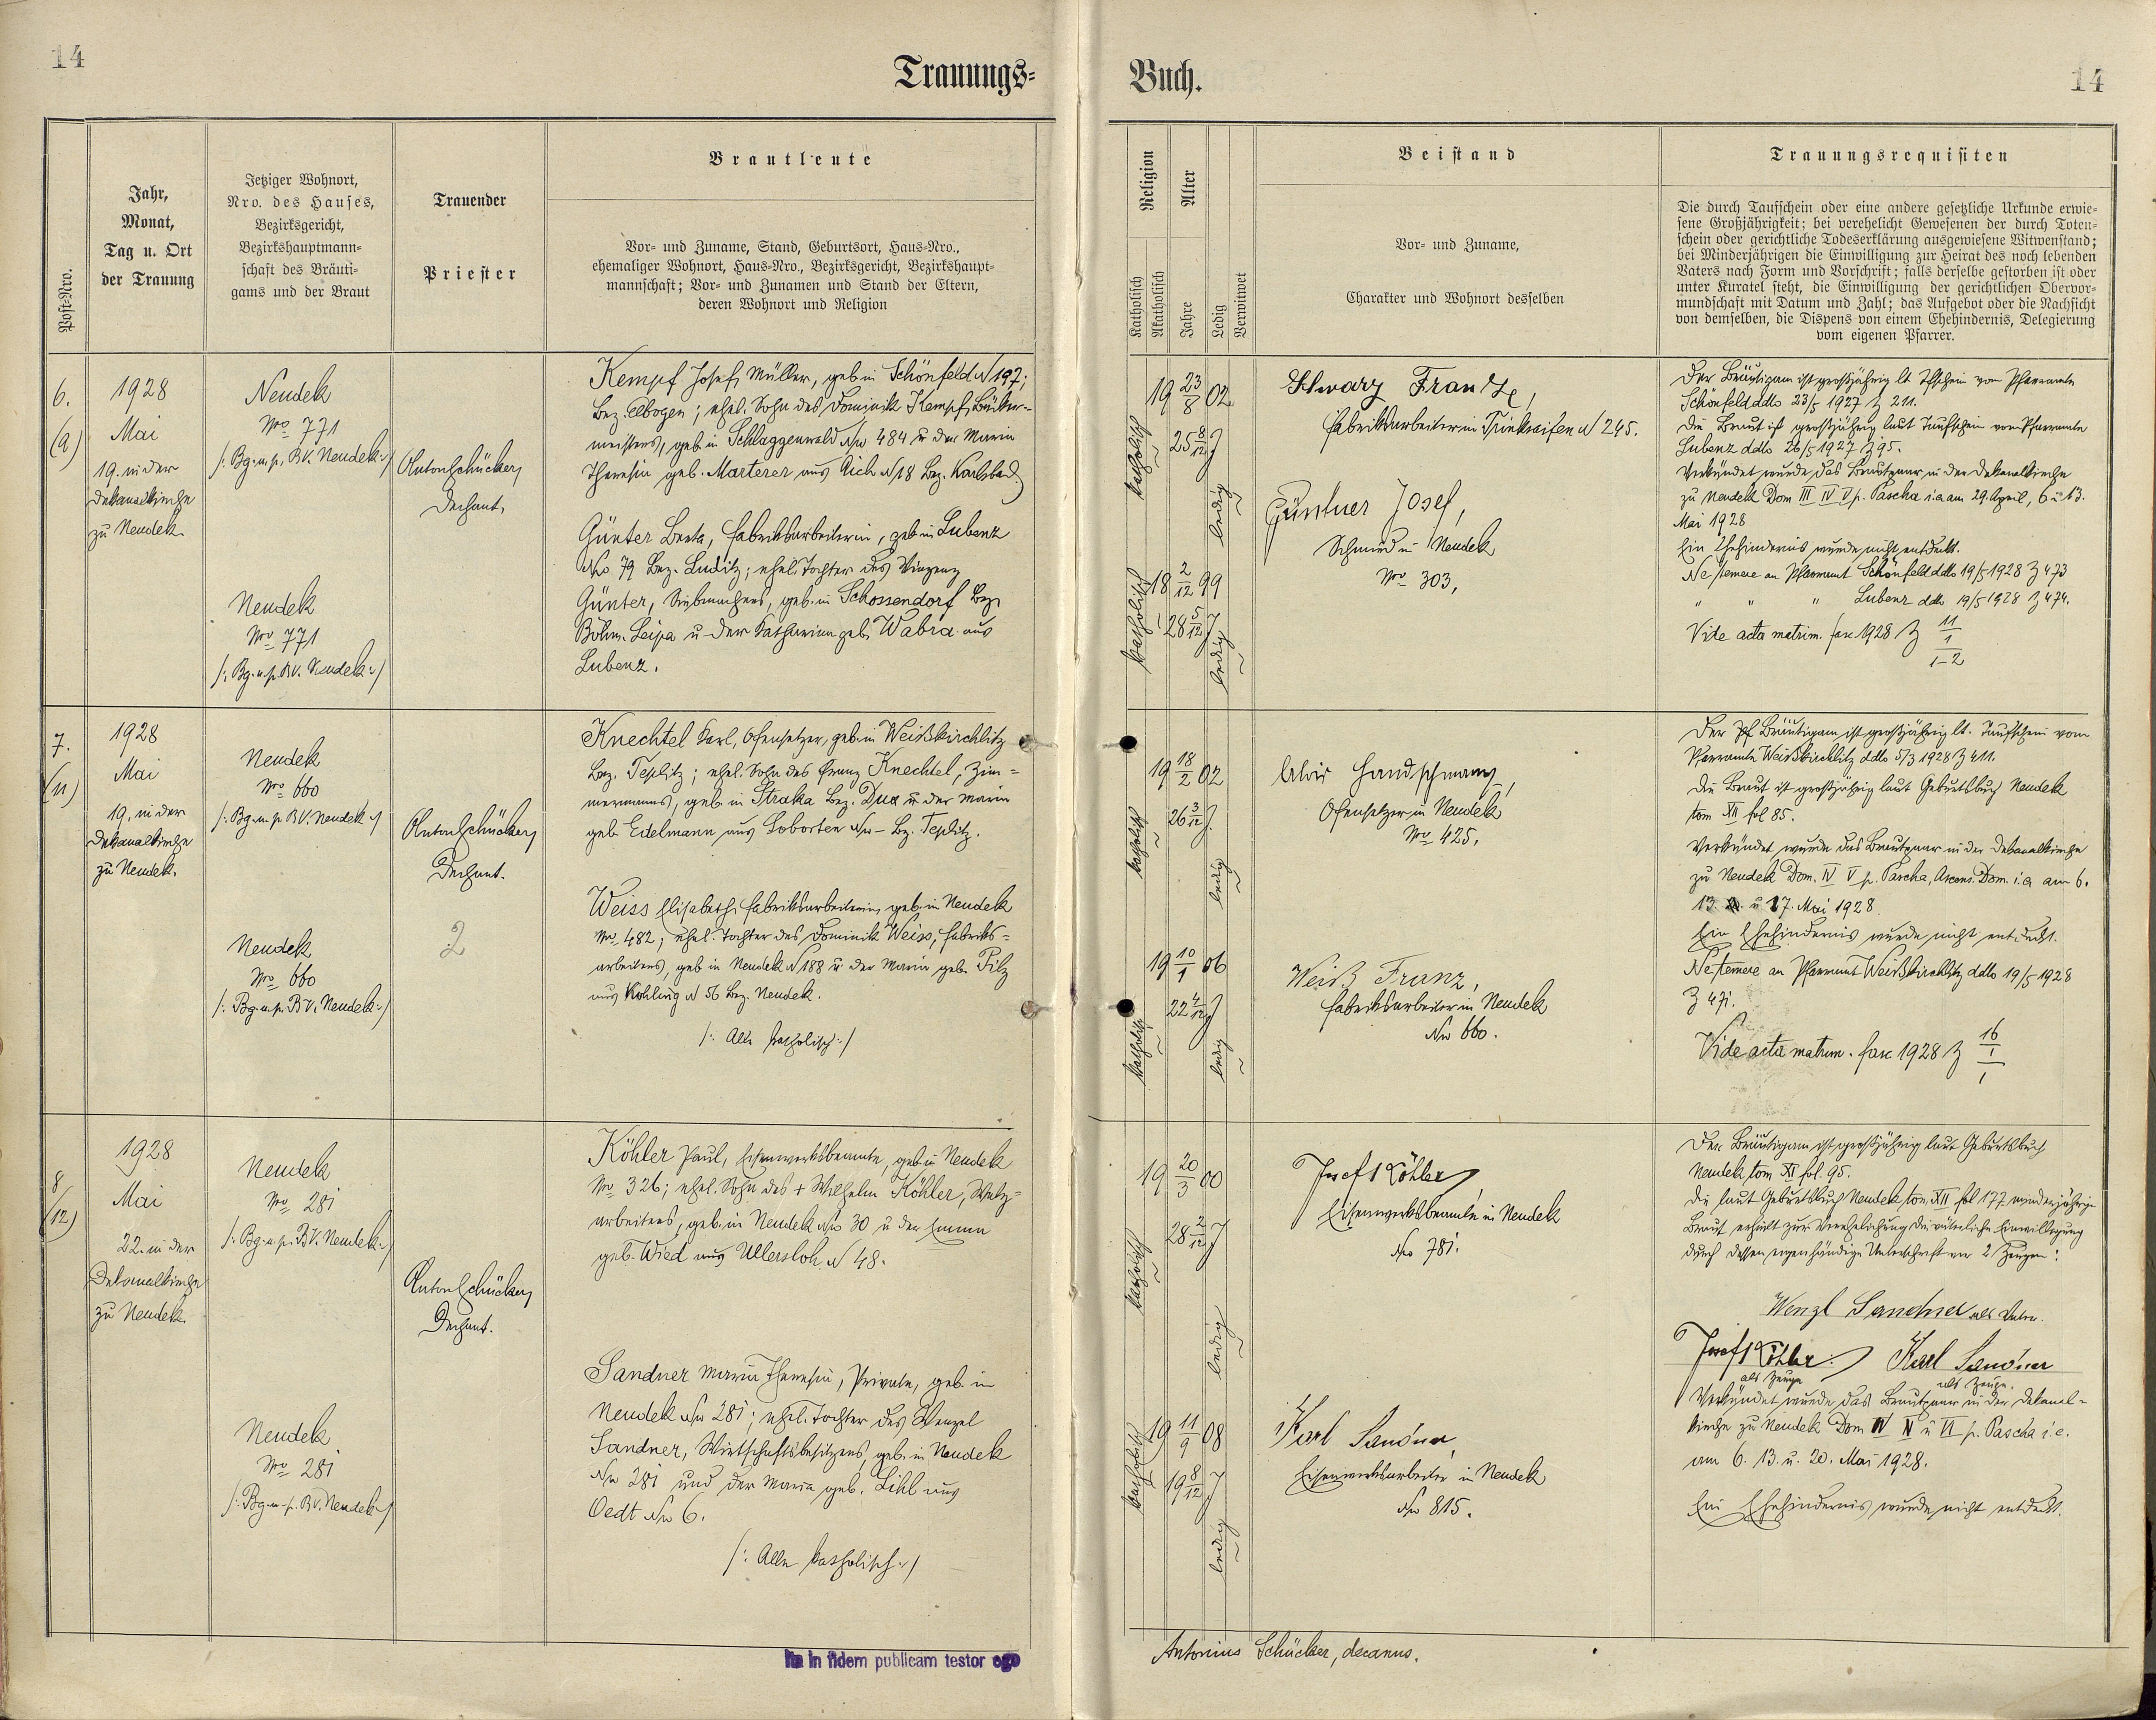 14
Trauungs-
Buch.
14
Post-Nro.
Jahr,
Monat,
Tag u. Ort
der Trauung
Jetziger Wohnort,
Nro. des Hauses,
Bezirksgericht,
Bezirkshauptmann-
schaft des Bräuti-
gams und der Braut
Trauender
Priester
Brautleute
Vor- und Zuname, Stand, Geburtsort, Haus-Nro.,
ehemaliger Wohnort, Haus-Nro., Bezirksgericht, Bezirkshaupt-
mannschaft; Vor- und Zunamen und Stand der Eltern,
deren Wohnort und Religion
Religion
Katholisch
Akatholisch
Alter
Jahre
Ledig
Verwitwet
Beistand
Vor- und Zuname,
Charakter und Wohnort desselben
Trauungsrequisiten
Die durch Taufschein oder eine andere gesetzliche Urkunde erwie-
sene Großjährigkeit; bei verehelicht Gewesenen der durch Toten-
schein oder gerichtliche Todeserklärung ausgewiesene Witwenstand;
bei Minderjährigen die Einwilligung zur Heirat des noch lebenden
Vaters nach Form und Vorschrift; falls derselbe gestorben ist oder
unter Kuratel steht, die Einwilligung der gerichtlichen Obervor-
mundschaft mit Datum und Zahl; das Aufgebot oder die Nachsicht
von demselben, die Dispens von einem Ehehindernis, Delegierung
vom eigenen Pfarrer.
6.
1928
Mai
19. in der
Dekanalkirche
zu Neudek.
Neudek
Nro 771
/: Bg. u. p. BV. Neudek :/
Neudek
Nro 771
/: Bg. u. p. BV. Neudek :/
Anton Schücker,
Dechant.
Kempf Josef, Müller, geb. in Schönfeld N 197;
Bez. Elbogen; ehel. Sohn des Dominik Kempf, Bäcker-
meisters, geb. in Schlaggenwald No 484 u. der Maria
Theresia geb. Marterer aus Aich N 18 Bez. Karlsbad.
Günter Berta, Fabriksarbeiterin, geb. in Lubenz
No 79 Bez. Luditz; ehel. Tochter des Vinzenz
Günter, Siebmachers, geb. in Schossendorf Bez.
Böhm. Leipa u. der Katharina geb. Wabra aus
Lubenz.
katholisch
19 23/8 02
25 8/12 J
ledig
katholisch
18 2/12 99
28 5/12 J
ledig
Schwarz Franz,
Fabriksarbeiter in Trinkseifen N 245.
Güntner Josef,
Schmied in Neudek
Nro 303,
Der Bräutigam ist großjährig lt Tfschein vom Pfarramte
Schönfeld ddto 23/5 1927 Z 211.
Die Braut ist großjährig laut Taufschein vom Pfarramte
Lubenz ddto 26/5 1927 Z 95.
Verkündet wurde das Brautpaar in der Dekanalkirche
zu Neudek Dom III IV V p. Pascha i.e. am 29. April, 6 u 13.
Mai 1928
Ein Ehehindernis wurde nicht entdeckt.
Ne temere an Pfarramt Schönfeld ddto 19/5 1928 Z 473
" " " Lubenz ddto 19/5 1928 Z 474.
Vide acta matrim. fasc 1928 Z 11/1/1-2
7.
(11)
1928
Mai
19. in der
Dekanalkirche
zu Neudek.
Neudek
Nro 660
/: Bg. u. p. BV. Neudek :/
Neudek
Nro 660
/: Bg. u. p. BV. Neudek :/
Anton Schücker,
Dechant.
2
Knechtel Karl, Ofensetzer, geb. in Weißkirchlitz
Bez. Teplitz; ehel. Sohn des Franz Knechtel, Zim-
mermanns, geb. in Straka Bez. Dux u. der Maria
geb. Edelmann aus Soborten No – Bz. Teplitz.
Weiss Elisabeth, Fabriksarbeiterin, geb. in Neudek
Nro 482; ehel. Tochter des Dominik Weiss, Fabriks-
arbeiters, geb. in Neudek N 188 u. der Maria geb. Pilz
aus Kohling N 56 Bez. Neudek.
/: Alle katholisch :/
katholisch
19 18/2 02
26 3/12 J.
ledig
katholisch
19 10/1 06
22 4/12 J
ledig
Alois Handschmann,
Ofensetzer in Neudek
Nro 425,
Weiß Franz,
Fabriksarbeiter in Neudek
No 660.
Der Bräutigam ist großjährig lt. Taufschein vom
Pfarramte Weißkirchlitz ddto 5/3 1928 Z 411.
Die Braut ist großjährig laut Geburtsbuch Neudek
tom XII fol 85.
Verkündet wurde das Brautpaar in der Dekanalkirche
zu Neudek Dom. IV V p. Pascha, Ascens. Dom. i.e. am 6.
13. u 17. Mai 1928.
Ein Ehehindernis wurde nicht entdeckt.
Ne temere an Pfarramt Weißkirchlitz ddto 19/5 1928
Z 471.
Vide acta matrim. fasc 1928 Z 16/1/1
8
(12)
1928
Mai
22. in der
Dekanalkirche
zu Neudek.
Neudek
Nro 281
/: Bg. u. p. BV. Neudek :/
Neudek
Nro 281
/: Bg. u. p. BV. Neudek :/
Anton Schücker,
Dechant.
Köhler Paul, Eisenwerksbeamte, geb. in Neudek
Nro 326; ehel. Sohn des + Wilhelm Köhler, Walz-
arbeiters, geb. in Neudek No 30 u der Emma
geb. Wied aus Ullersloh N 48.
Sandner Maria Theresia, Private, geb. in
Neudek No 281; ehel. Tochter des Wenzel
Sandner, Wirtschaftsbesitzers, geb. in Neudek
No 281 und der Maria geb. Lihl aus
Oedt No 6.
/: Alle katholisch :/
katholisch
19 20/3 00
28 2/12 J
ledig
katholisch
19 11/9 08
19 8/12 J
ledig
Josef Köhler
Eisenwerksbeamte in Neudek
No 781.
Karl Sandner,
Eisenwerksarbeiter in Neudek
No 815.
Der Bräutigam ist großjährig laut Geburtsbuch
Neudek tom XI fol. 95.
Die laut Geburtsbuch Neudek tom. XII fol 177 minderjährige
Braut erhielt zur Verehelichung die väterliche Einwilligung
durch dessen eigenhändige Unterschrift vor 2 Zeugen:
Wenzl Sandner als Vater.
Josef Köhler Karl Sandner
als Zeuge als Zeuge.
Verkündet wurde das Brautpaar in der Dekanal-
kirche zu Neudek Dom IV V u VI p. Pascha i.e.
am 6. 13. u. 20. Mai 1928.
Ein Ehehindernis wurde nicht entdeckt.
Ita in fidem publicam testor ego
Antonius Schücker, decanus.